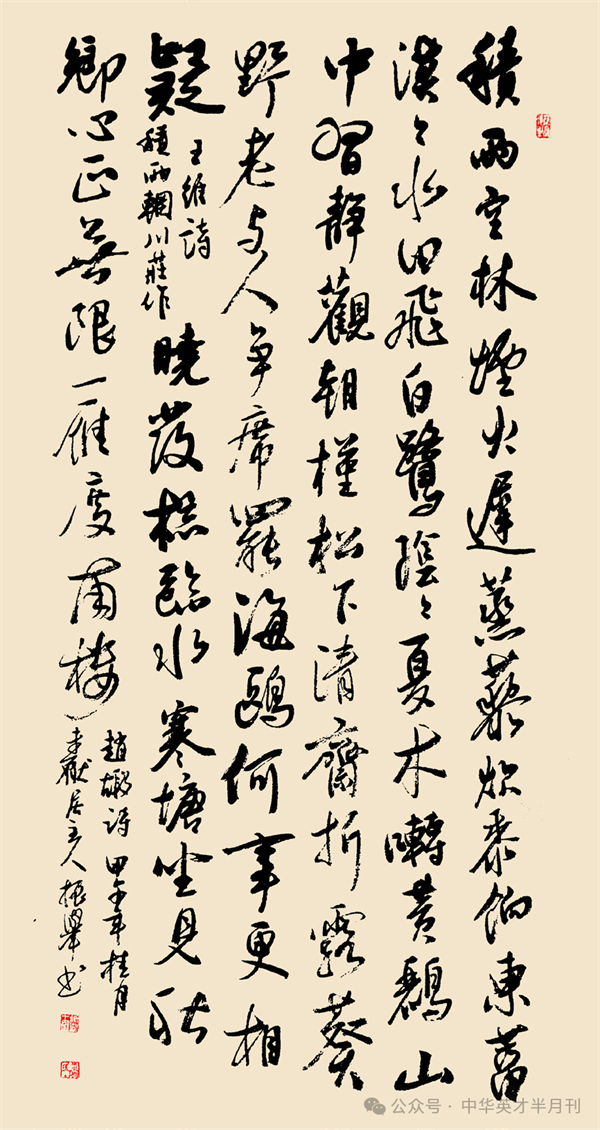 積雨空林煙火遲蒸藜炊黍餉東菑
漠々水田飛白鷺陰々夏木囀黃鸝山
中習靜觀朝槿松下清齋折露葵
野老与人争席罷海鷗何事更相
疑
王維詩
積雨輞川莊作
曉發梳臨水寒塘坐見秋
鄉心正無限一雁度南樓
趙嘏詩 甲午年桂月
居主人振舉书
公众号·中华英才半月刊